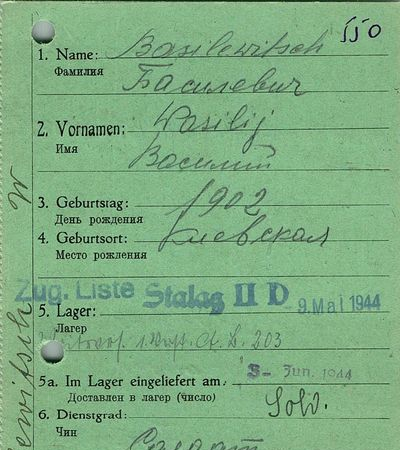 550
1. Name: Basilewitsch
Фамилия Басилевич
2. Vornamen: Wasilij
Имя Василий
3. Geburtstag: 1902
День рождения
4. Geburtsort: Киевская
Место рождения
Zug. Liste Stalag II D 9. Mai 1944
5. Lager:
Лагерь 203
5a. Im Lager eingeliefert am: 3- Jun. 1944
Доставлен в лагерь (число)
6. Dienstgrad: Sold.
Чин Солдат
ewitsch W